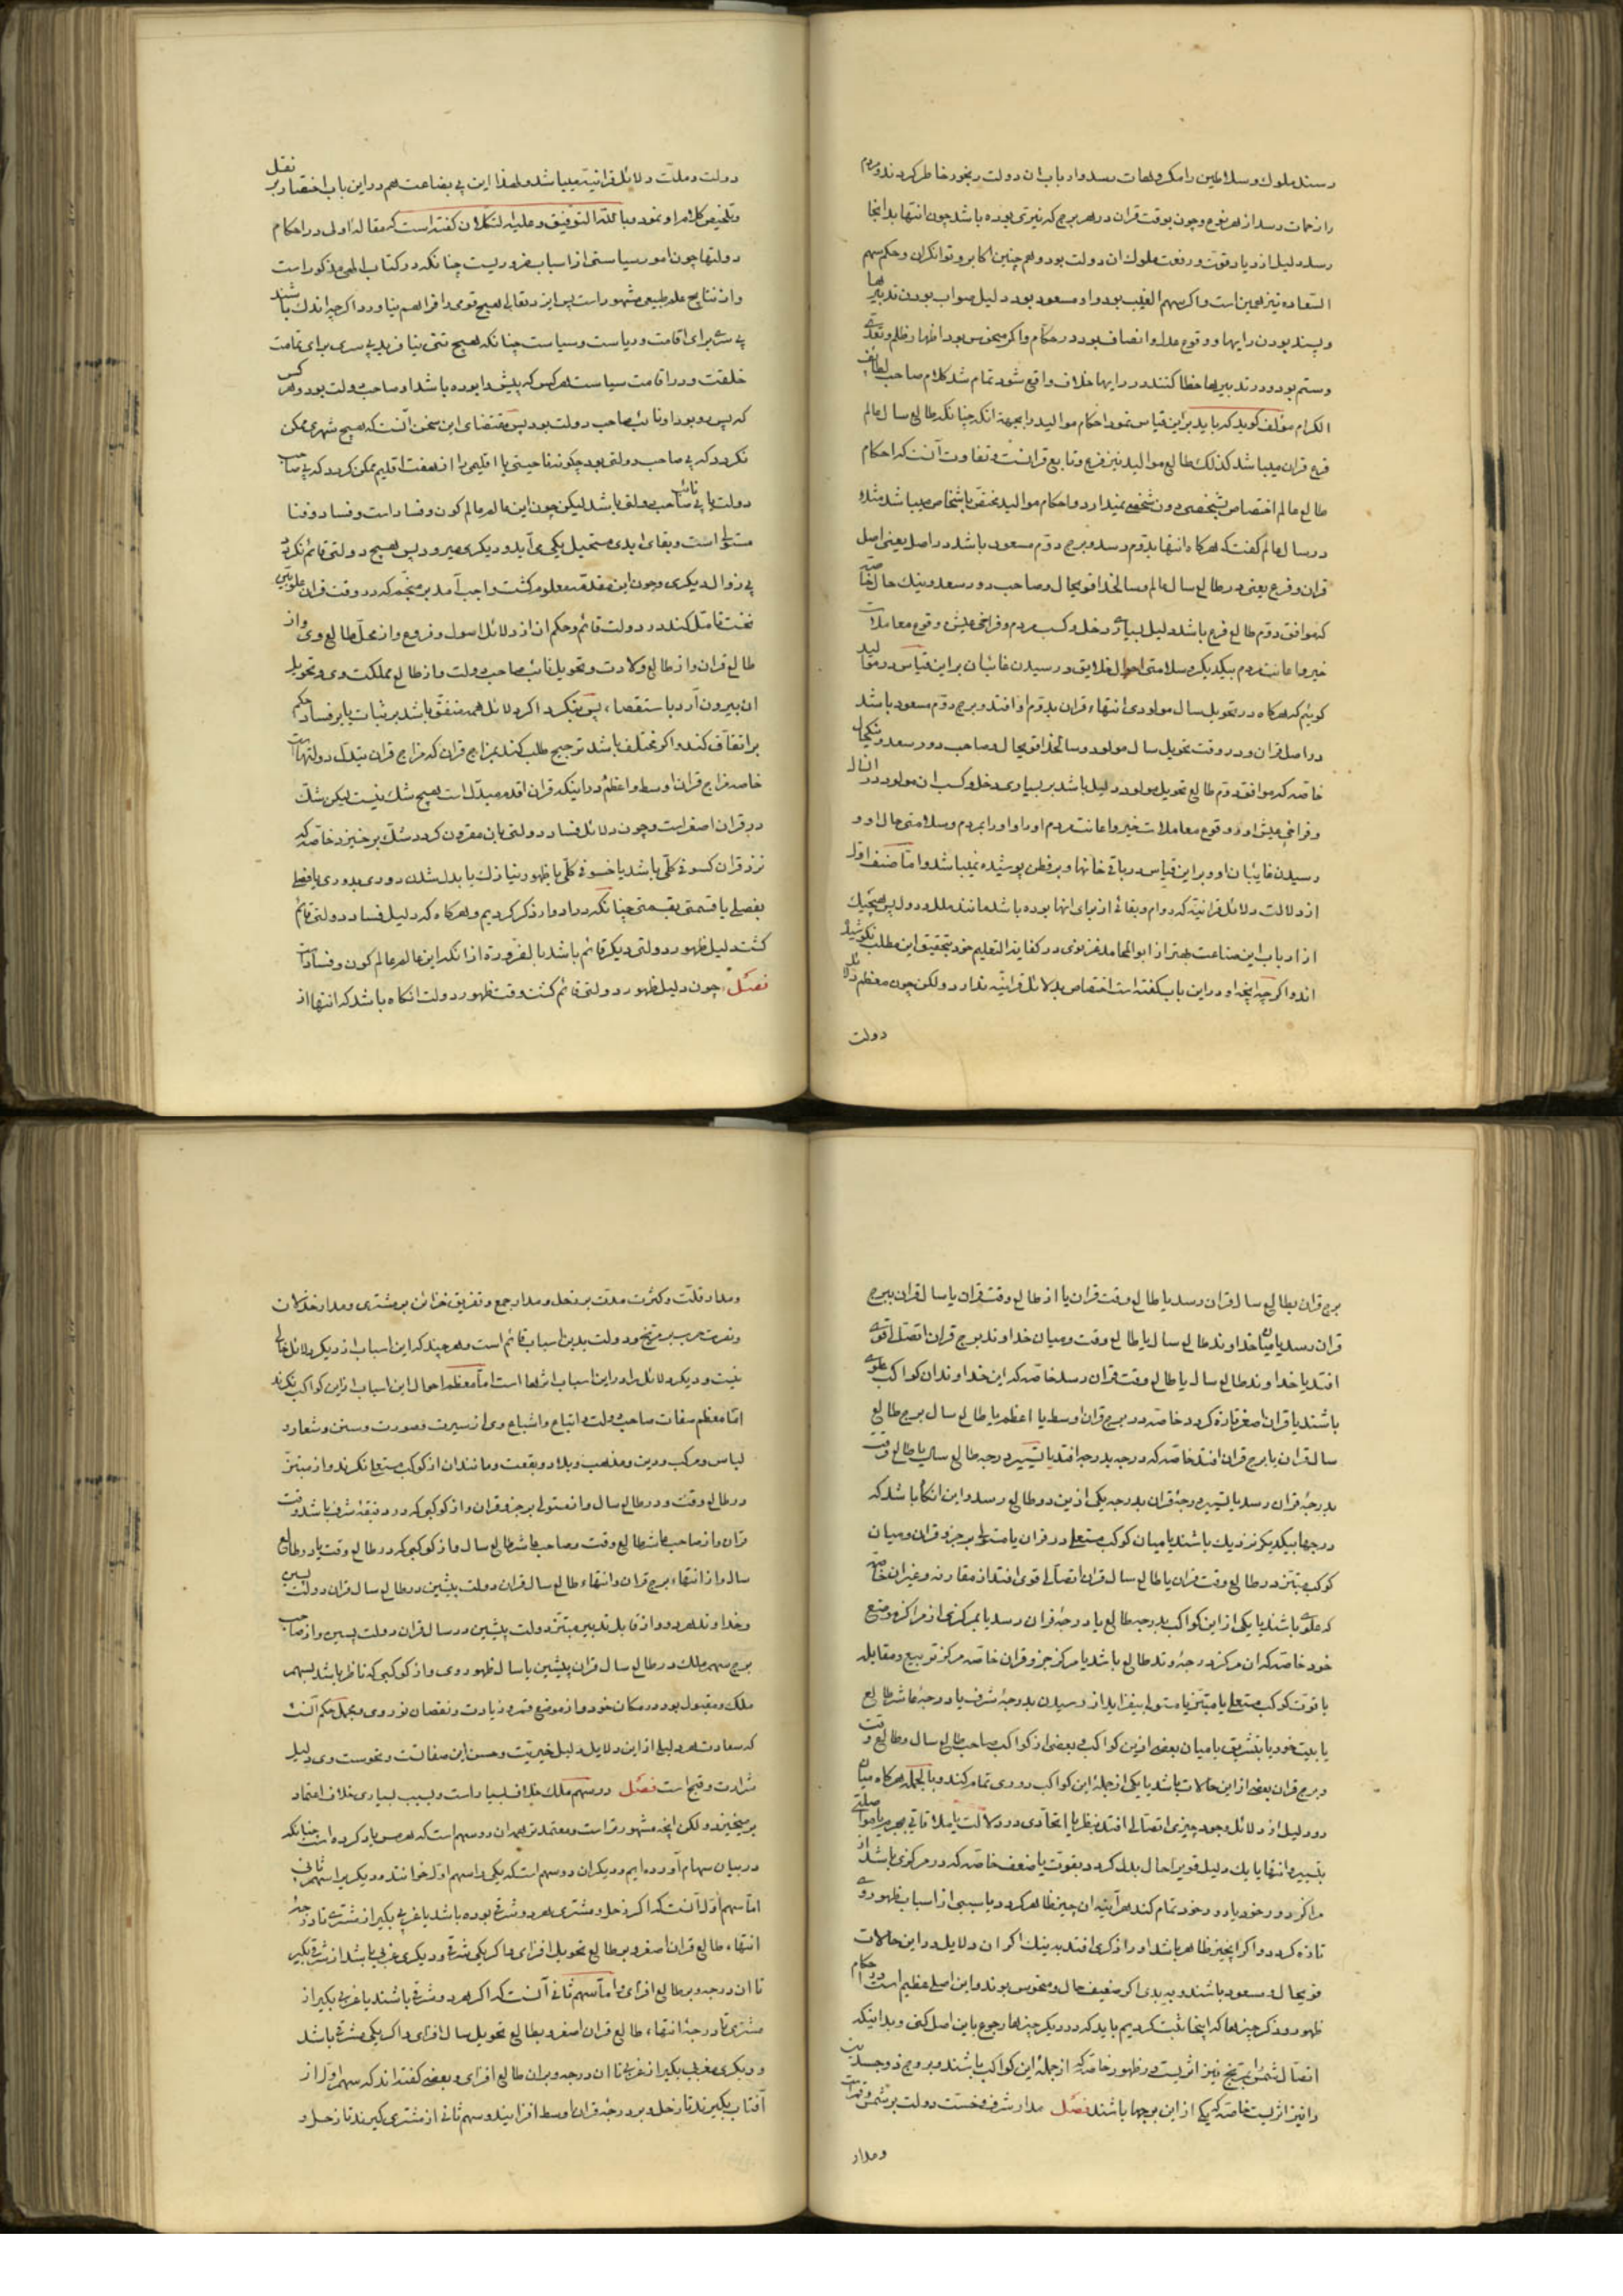 رسند ملوك و سلاطين را مكروهات رسد و ارباب ان دولت رنجور خاطر كردند و مردم
را زحمات رسد از هر نوع و چون بوقت قران در هر برج كه نيرى بوده باشد چون انتها بدانجا
رسد دليل ازدياد قوت و رفعت ملوك ان دولت بود و هم چنين اكابر و توانكران و حكم سهم
السعاده نيز همين است و اكر سهم الغيب بود و او مسعود بود دليل صواب بودن تدبيرها
و پسنديده بودن رايها و وقوع عدل و انصاف بود در حكام و اكر منحوس بود اظهار ظلم و تعدى
و ستم بود و در تدبيرها خطا كنند و در رايها خلاف واقع شود تمام شد كلام صاحب لطايف
الكرام مؤلف كويد كه بايد بر اين قياس نمود احكام مواليد را بجهة انكه چنانكه طالع سال عالم
فرع قران ميباشد كذلك طالع مواليد نيز فرع و تابع قرانست و تفاوت آنست كه احكام
طالع عالم اختصاص بشخصى دون شخصى نميدارد و احكام مواليد مختص باشخاص ميباشد مثلا
در سال عالم كفت كه هركاه انتها بدوم رسد و برج دوم مسعود باشد در اصل يعنى اصل
قران و فرع يعنى در طالع سال عالم و سالخدا قويحال و صاحب دور سعد و نيك حال خاصه
كه موافق دوم طالع فرع باشد دليل بسيارى دخل و كسب مردم و فراخى عيش و وقوع معاملات
خير و اعانت مردم بيكديكر و سلامتى احوال خلايق و رسيدن غائبان بر اين قياس در مواليد
كوئيم كه هركاه در تحويل سال مولودى انتهاء قران بدوم او افتد و برج دوم مسعود باشد
در اصل قران و در وقت تحويل سال مولود و سالخدا قويحال و صاحب دور سعد و نيكحال
خاصه كه موافق دوم طالع تحويل مولود دليل باشد بر بسيارى دخل و كسب ان مولود در ان سال
و فراخى عيش او و وقوع معاملات خير و اعانت مردم او را و او را بمردم و سلامتى حال او و
رسيدن غايبان او و بر اين قياس در باقى خانها و بر فطن پوشيده نميباشد و اما صنف اول
از دلالت دلائل قرانيه كه دوام و بقائى از براى انها بوده باشد مانند ملل و دول پس هيچيك
از ارباب اين صناعت بهتر از ابوالمحامد غزنوى در كفاية التعليم خود بتحقيق اين مطلب نكوشيده
اند و اكر چه انچه او در اين باب كفته است اختصاص بدلائل قرانيه ندارد ولكن چون معظم دلائل
دولت
دولت و ملت دلائل قرانيه ميباشد و لهذا اين بى بضاعت هم در اين باب اختصار بر نقل
و تلخيص كلام او نمود و بالله التوفيق و عليه التكلان كفته است كه مقاله اول در احكام
دولتها چون امور سياستى از اسباب ضروريست چنانكه در كتاب الهى مذكور است
و از نتايج علم طبيعى مشهور است پس ايزد تعالى هيچ قوى را فراهم نياورد اكر چه اندك باشند
بى سرى براى اقامت و رياست و سياست چنانكه هيچ تنى نيافريد بى سرى براى تمامت
خلقت و در اقامت سياست هر كس كه پيشدا بوده باشد او صاحب دولت بود و هر كس
كه پس رو بود او نائب صاحب دولت بود پس مقتضاى اين سخن آنست كه هيچ شهرى ممكن
نكردد كه بى صاحب دولتى بود چكونه ناحيتى يا اقليمى يا از هفت اقليم ممكن كردد كه بى صاحب
دولت يا بى نائب صاحب دولتى باشد ليكن چون اين عالم عالم كون و فساد است و فساد و فنا
مستولى است و بقاى ابدى مستحيل يكى مى آيد و ديكرى ميرود پس هيچ دولتى قائم نكردد
بى زوال ديكرى و چون اين مقدمه معلوم كشت واجب آمد بر منجم كه در وقت قران علويتين
نخست تامل كند در دولت قائم و حكم ان از دلائل اصول و فروع و از محل طالع وى و از
طالع قران و از طالع ولادت و تحويل نائب صاحب دولت و از طالع مملكت وى و تحويل
ان بيرون آرد باستقصاء پس بنكرد اكر دلائل همه متفق باشد بر ثبات يا بر فساد حكم
بر اتفاق كند و اكر مختلف باشد ترجيح طلب كند بمزاج قران كه مزاج قران مبدل دولتهاست
خاصه مزاج قران اوسط و اعظم و در اينكه قران اقدم مبدل است هيچ شك نيست ليكن شك
در قران اصغر است و چون دلائل فساد دولتى بان مقرون كردد شك برخيزد خاصه كه
نزد قران كسوفى كلى باشد يا خسوفى كلى يا ظهور نيازك يا بدل شدن دورى بدورى يا فصلى
بفصلى يا قسمتى بقسمتى چنانكه در ادوار ذكر كرديم و هركاه كه دليل فساد دولتى قائم
كشت دليل ظهور دولتى ديكر قائم باشد بالضرورة از انكه اين عالم عالم كون و فساد است
فصل چون دليل ظهور دولتى قائم كشت وقت ظهور دولت انكاه باشد كه انتها از
برج قران بطالع سال قران رسد يا طالع وقت قران يا از طالع وقت قران يا سال قران ببرج
قران رسد يا ميان خداوند طالع سال يا طالع وقت و ميان خداوند برج قران اتصال قوى
افتد يا خداوند طالع سال يا طالع وقت قران رسد خاصه كه اين خداوندان كواكب علوى
باشند يا قران اصغر تازه كردد خاصه در برج قران اوسط يا اعظم يا طالع سال برج طالع
سال قران يا برج قران افتد خاصه كه درجه بدرجه افتد يا تسيير درجه طالع سال يا طالع وقت
بدرجه قران رسد يا تسيير درجه قران بدرجه يكى از اين دو طالع رسد و اين انكاه باشد كه
درجها بيكديكر نزديك باشند يا ميان كوكب مستعلى در قران يا مستولى بر جزو قران و ميان
كوكب مبتز در طالع وقت قران يا طالع سال قران اتصالى قوى افتد از مقارنه و غير ان خاصه
كه علوى باشند يا يكى از اين كواكب بدرجه طالع يا درجه قران رسد يا بمركزى از مراكز موضع
خود خاصه كه ان مركز درجه وتد طالع باشد يا مركز جزو قران خاصه مركز تربيع و مقابله
يا قوت كوكب مستعلى يا مبتز يا مستولى بيفزايد از رسيدن بدرجه شرف يا درجه عاشر طالع
يا بيت خود يا بتشريق يا ميان بعضى از اين كواكب و بعضى از كواكب صاحب طالع سال و طالع وقت
و برج قران بعضى از اين حالات باشد يا يكى از جمله اين كواكب دورى تمام كند و بالجمله هركاه ميان
دو دليل از دلائل وجود چيزى اتصالى افتد بنظر يا اتحادى در دلالت يا ملاقاتى بجرم يا مواصلتى
بتسيير و انتها يا يك دليل قوى را حال بدل كردد بقوت يا ضعف خاصه كه در مركزى باشد از
مراكز دور خود يا دور خود تمام كند هر آينه ان چيز ظاهر كردد يا سببى از اسباب ظهور وى
تازه كردد و اكر انچيز ظاهر باشد او را ذكرى افتد به نيك اكر ان دلايل در اين حالات
قويحال و مسعود باشند و به بدى اكر ضعيف حال و منحوس بوند و اين اصلى عظيم است در احكام
ظهور و ذكر چيزها كه اينجا ثبت كرديم بايد كه در ديكر چيزها رجوع باين اصل كنى و بدانكه
اتصال شمس بمريخ نيز اثريست در ظهور خاصه كه از جمله اين كواكب باشند و بروج ذو جسدين
را نيز اثريست خاصه كه يكى از اين برجها باشند فصل مدار شرف و خست دولت بر شمس و قمر است
و مدار
و مدار قلت و كثرت مدت بر زحل و مدار جمع و تفريق خزائن بر مشترى و مدار خذلان
و نصرت حرب بر مريخ و دولت بدين اسباب قائم است و هر چند كه اين اسباب از ديكر دلائل خالى
نيست و ديكر دلائل را در اين اسباب اثرها است اما معظم احوال اين اسباب از اين كواكب نكرند
اما معظم صفات صاحب دولت و اتباع و اشياع وى از سيرت و صورت و سنن و شعار و
لباس و مركب و دين و مذهب و بلاد و بقعت و مانند ان از كوكب مستعلى نكرند و از مبتز
در طالع وقت و در طالع سال و از مستولى بر جزو قران و از كوكبى كه در دقيقه شرف باشد وقت
قران و از صاحب عاشر طالع وقت و صاحب عاشر طالع سال و از كوكبى كه در طالع وقت يا در طالع
سال و از انتهاء برج قران و انتهاء طالع سال قران دولت پيشين در طالع سال قران دولت پسين
و خداوند هر دو و از قابل تدبير مبتز دولت پيشين در سال قران دولت پسين و از صاحب
برج سهم ملك در طالع سال قران پيشين يا سال ظهور وى و از كوكبى كه ناظر باشد بسهم
ملك و مقبول بود در مكان خود و از موضع قمر و زيادت و نقصان نور وى و مجمل حكم آنست
كه سعادت هر دليلى از اين دلايل دليل خيريت و حسن اين صفاتست و نحوست وى دليل
شرارت و قبح است فصل در سهم ملك خلاف بسيار است و بسبب بسيارى خلاف اعتماد
بر ميخيزد ولكن انچه مشهورتر است و معتمدتر همان دو سهم است كه هرمس ياد كرده است چنانكه
در بيان سهام آورده ايم و ديكران دو سهم است كه يكى را سهم اول خوانند و ديكرى را سهم ثانى
اما سهم اول آنست كه اكر زحل و مشترى هر دو شرقى بوده باشد يا غربى بكير از مشترى تا درجه
انتهاء طالع قران اصغر و بر طالع تحويل افزاى و اكر يكى شرقى و ديكرى غربى باشد از شرقى بكير
تا ان درجه و بر طالع افزاى و اما سهم ثانى آنست كه اكر هر دو شرقى باشند يا غربى بكير از
مشترى تا درجه انتهاء طالع قران اصغر و بطالع تحويل سال افزاى و اكر يكى مشرقى باشد
و ديكرى مغربى بكير از غربى تا ان درجه و بر ان طالع افزاى و بعضى كفته اند كه سهم اول از
آفتاب بكيرند تا زحل و بر درجه قران اوسط افزايند و سهم ثانى از مشترى كيرند تا زحل و